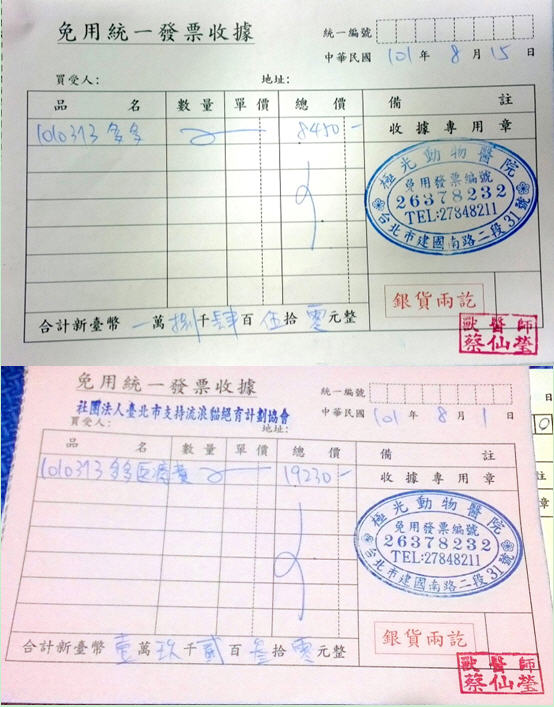 免用統一發票收據
統一編號
中華民國 101 年 8 月 15 日
買受人： 地址：
品名 數量 單價 總價 備註
1010373 多多 8450-
收據專用章
極光動物醫院
免用發票編號
26378232
TEL:27848211
台北市建國南路二段31號
銀貨兩訖
合計新臺幣 一萬捌千肆百伍拾零元整
獸醫師
蔡仙瑩
免用統一發票收據
統一編號
社團法人臺北市支持流浪貓絕育計劃協會
中華民國 101 年 8 月 1 日
買受人： 地址：
品名 數量 單價 總價 備註
1010373 多多醫療費 19230-
收據專用章
極光動物醫院
免用發票編號
26378232
TEL:27848211
台北市建國南路二段31號
銀貨兩訖
合計新臺幣 壹萬玖千貳百叁拾零元整
獸醫師
蔡仙瑩
日
0